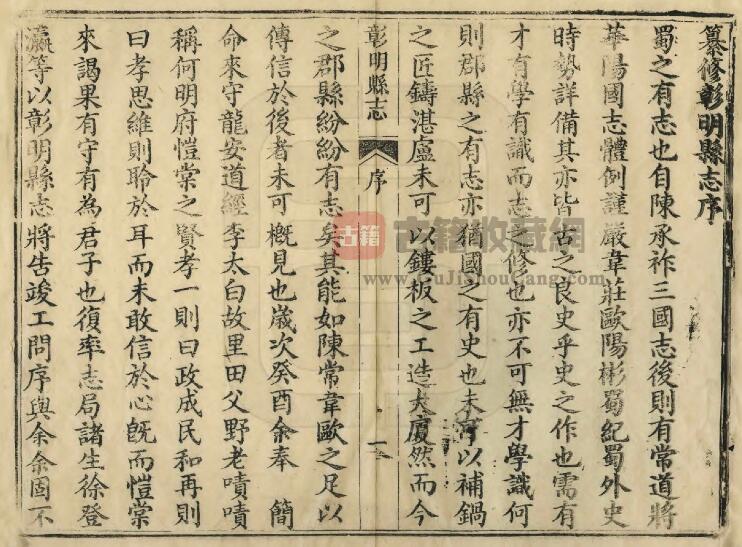 纂修彰明縣志序
蜀之有志也自陳承祚三國志後則有常道將
華陽國志體例謹嚴韋莊歐陽彬蜀紀蜀外史
時勢詳備其亦皆古之良史乎史之作也需有
才有學有識而志之修也亦不可無才學識何
則郡縣之有志亦猶國之有史也未可以補鍋
之匠鑄湛盧未可以鏤板之工造大廈然而今
彰明縣志
序
一
之郡縣紛紛有志矣其能如陳常韋歐之足以
傳信於後者未可概見也歲次癸酉余奉 簡
命來守龍安道經李太白故里田父野老嘖嘖
稱何明府愷棠之賢孝一則曰政成民和再則
曰孝思維則聆於耳而未敢信於心旣而愷棠
來謁果有守有為君子也復率志局諸生徐登
瀛等以彰明縣志將告竣工問序與余余固不
古籍
古籍收藏網
www.GuJiShouCang.com